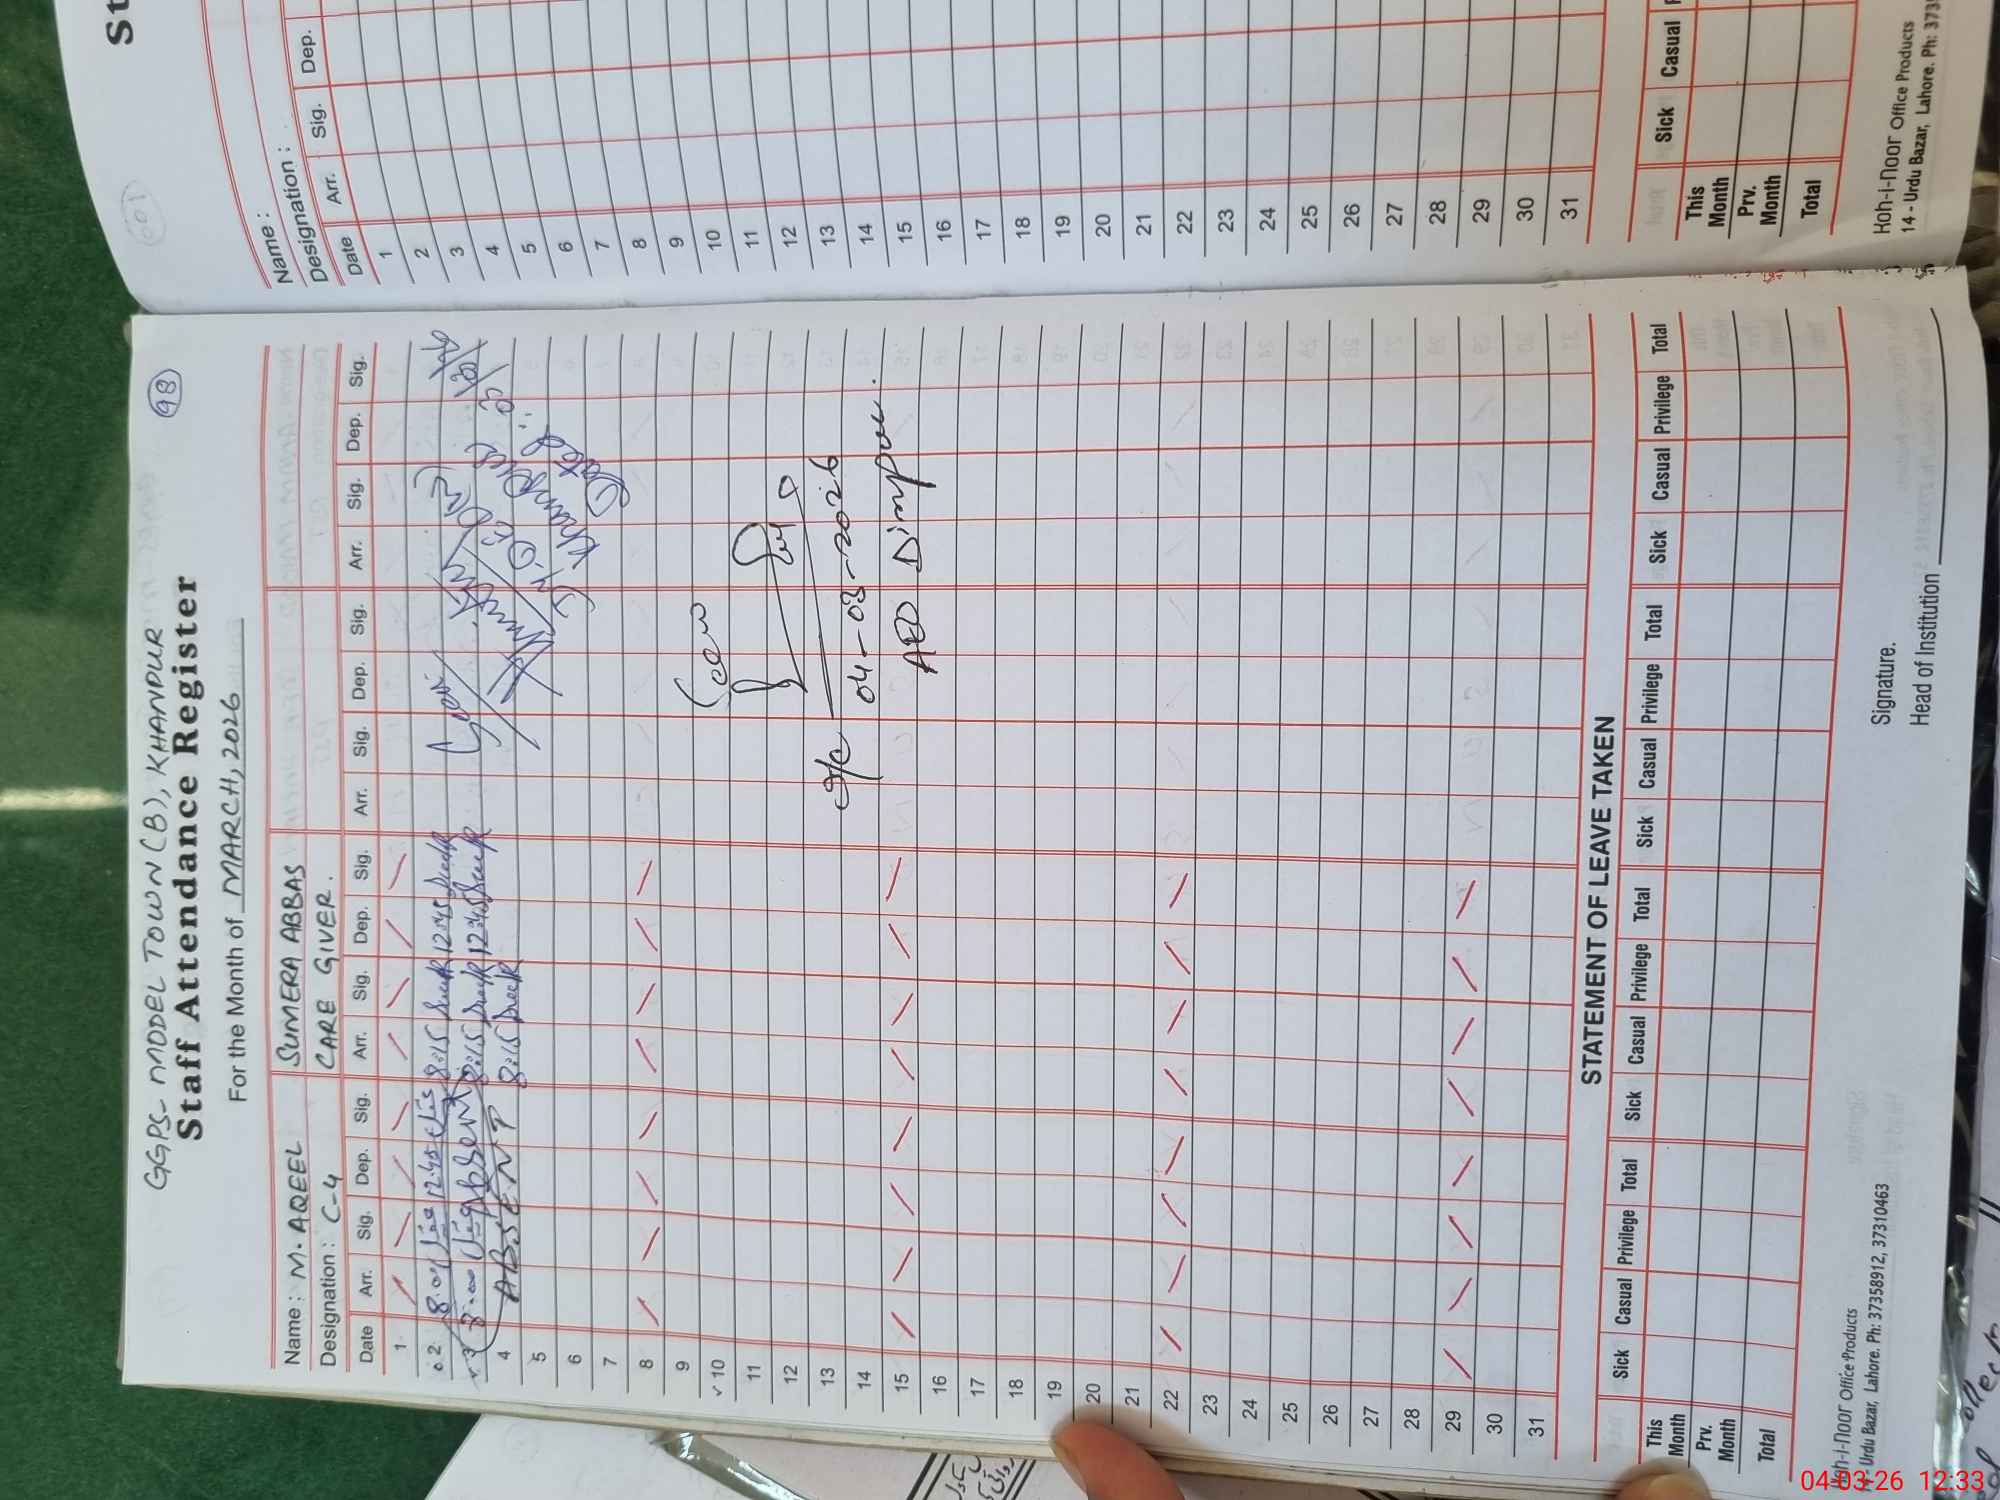 98
GGPS- MODEL TOWN (B), KHANPUR
Staff Attendance Register
For the Month of MARCH, 2026
Name : M. AQEEL SUMERA ABBAS
Designation : C-4 CARE GIVER.
Date Arr. Sig. Dep. Sig. Arr. Sig. Dep. Sig. Arr. Sig. Dep. Sig. Arr. Sig. Dep. Sig.
1
2 8:00 12:45 8:15 12:45
3 8:00 Absent 8:15 12:45
4 ABSENT 8:15
5
6
7
8
9
10
11
12
13
14
15
16
17
18
19
20
21
22
23
24
25
26
27
28
29
30
31
Seen
04-03-2026
Khanpur
Dated
STATEMENT OF LEAVE TAKEN
Sick Casual Privilege Total Sick Casual Privilege Total Sick Casual Privilege Total Sick Casual Privilege Total
This Month
Prv. Month
Total
Koh-i-Noor Office Products
14 - Urdu Bazar, Lahore. Ph: 37358912, 37310463
Signature.
Head of Institution
St
Name :
Designation :
Date Arr. Sig. Dep.
1
2
3
4
5
6
7
8
9
10
11
12
13
14
15
16
17
18
19
20
21
22
23
24
25
26
27
28
29
30
31
Sick Casual
This Month
Prv. Month
Total
Koh-i-Noor Office Products
14 - Urdu Bazar, Lahore. Ph: 373
04-03-26 12:33